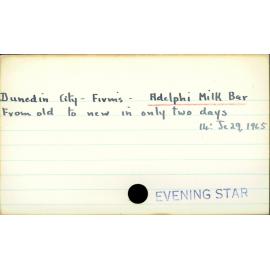 Dunedin City - Firms - Adelphi Milk Bar
From old to new in only two days
14: Je 29, 1965
EVENING STAR